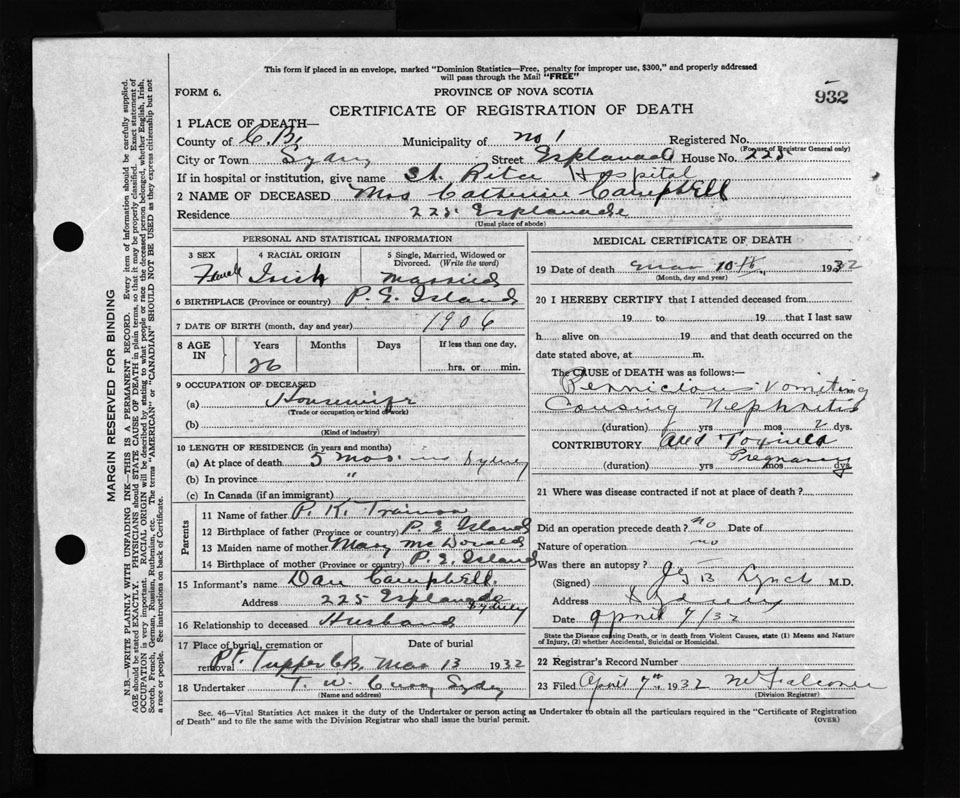 This form if placed in an envelope, marked "Dominion Statistics—Free, penalty for improper use, $300," and properly addressed
will pass through the Mail "FREE"
FORM 6.
PROVINCE OF NOVA SCOTIA
932
CERTIFICATE OF REGISTRATION OF DEATH
1 PLACE OF DEATH—
County of C.B. Municipality of No 1 Registered No.
(For use of Registrar General only)
City or Town Sydney Street Esplanade House No. 225
If in hospital or institution, give name St. Rita Hospital
2 NAME OF DECEASED Mrs Catherine Campbell
Residence 225 Esplanade
(Usual place of abode)
PERSONAL AND STATISTICAL INFORMATION
3 SEX 4 RACIAL ORIGIN 5 Single, Married, Widowed or
Divorced. (Write the word)
Female Irish Married
6 BIRTHPLACE (Province or country) P. E. Island
7 DATE OF BIRTH (month, day and year) 1906
8 AGE IN Years Months Days If less than one day,
26 hrs. or min.
9 OCCUPATION OF DECEASED
(a) Housewife
(Trade or occupation or kind of work)
(b)
(Kind of industry)
10 LENGTH OF RESIDENCE (in years and months)
(a) At place of death 5 mos. in Sydney
(b) In province "
(c) In Canada (if an immigrant)
Parents
11 Name of father P. K. Trainor
12 Birthplace of father (Province or country) P. E Island
13 Maiden name of mother Mary McDonald
14 Birthplace of mother (Province or country) P. E. Island
15 Informant's name Dan Campbell.
Address 225 Esplanade Sydney
16 Relationship to deceased Husband
17 Place of burial, cremation or Date of burial
removal Pt. Tupper C.B. Mar 13 1932
18 Undertaker T. W. Curry Sydney
(Name and address)
MEDICAL CERTIFICATE OF DEATH
19 Date of death Mar 10th, 1932
(Month, day and year)
20 I HEREBY CERTIFY that I attended deceased from
19 to 19 that I last saw
h alive on 19 and that death occurred on the
date stated above, at m.
The CAUSE OF DEATH was as follows:—
Pernicious Vomiting
Causing Nephritis
(duration) yrs mos 2 dys.
CONTRIBUTORY and Toximea
Pregnancy
(duration) yrs mos dys
21 Where was disease contracted if not at place of death?
Did an operation precede death? no Date of
Nature of operation no
Was there an autopsy?
(Signed) Jas B Lynch M.D.
Address Sydney
Date April 7/32
State the Disease causing Death, or in death from Violent Causes, state (1) Means and Nature
of Injury, (2) whether Accidental, Suicidal or Homicidal.
22 Registrar's Record Number
23 Filed April 7th, 1932
(Division Registrar)
Sec. 46—Vital Statistics Act makes it the duty of the Undertaker or person acting as Undertaker to obtain all the particulars required in the "Certificate of Registration
of Death" and to file the same with the Division Registrar who shall issue the burial permit.
(OVER)
MARGIN RESERVED FOR BINDING
N.B.—WRITE PLAINLY WITH UNFADING INK—THIS IS A PERMANENT RECORD. Every item of information should be carefully supplied.
AGE should be stated EXACTLY. PHYSICIANS should STATE CAUSE OF DEATH in plain terms, so that it may be properly classified. Exact statement of
OCCUPATION is very important. RACIAL ORIGIN will be described by stating to what people or race the deceased person belonged, whether English, Irish,
Scotch, French, German, Russian, Ruthenian, etc. The terms "AMERICAN" or "CANADIAN" SHOULD NOT BE USED as they express citizenship but not
a race or people. See instructions on back of Certificate.